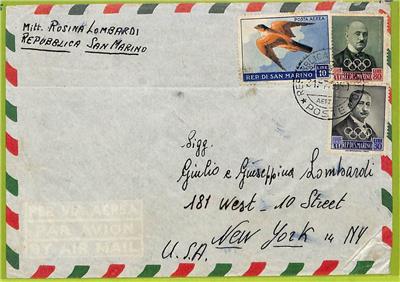 Mitt. ROSINA LOMBARDI
REPUBBLICA SAN MARINO
POSTA AEREA
REP. DI SAN MARINO
LIRE
10
POSTE
Sigg.
Giulio e Giuseppina Lombardi
181 West - 10 Street
New York 14 NY
U.S.A.
PER VIA AEREA
PAR AVION
BY AIR MAIL